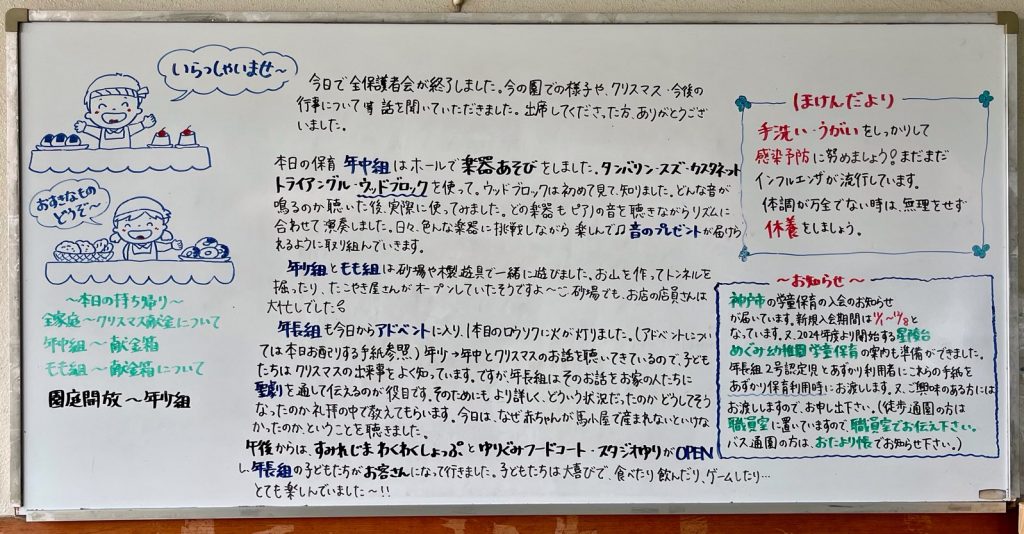 いらっしゃいませ〜
おすきなもの
どうぞ〜
〜本日の持ち帰り〜
全家庭〜クリスマス献金について
年中組〜献金箱
もも組〜献金箱について
園庭開放〜年少組
今日で全保護者会が終了しました。今の園での様子や、クリスマス・今後の
行事について話を聞いていただきました。出席してくださった方、ありがとうござ
いました。
本日の保育 年中組はホールで楽器あそびをしました。タンバリン・スズ・カスタネット
トライアングル・ウッドブロックを使って。ウッドブロックは初めて見て、知りました。どんな音が
鳴るのか聴いた後、実際に使ってみました。どの楽器もピアノの音を聴きながらリズムに
合わせて演奏しました。日々、色んな楽器に挑戦しながら楽しんで♫音のプレゼントが届けら
れるように取り組んでいきます。
年少組ともも組は砂場や木製遊具で一緒に遊びました。お山を作ってトンネルを
掘ったり、たこやき屋さんがオープンしていたそうですよ〜 砂場でも、お店の店員さんは
大忙しでした!
年長組も今日からアドベントに入り、1本目のロウソクに火が灯りました。(アドベントについ
ては本日お配りする手紙参照。)年少→年中とクリスマスのお話を聴いてきているので、子ども
たちはクリスマスの出来事をよく知っています。ですが、年長組はそのお話をお家の人たちに
聖劇を通して伝えるのが役目です。そのためにもより詳しく、どういう状況だったのかどうしてそう
なったのか〜礼拝の中で教えてもらいます。今日は、なぜ赤ちゃんが馬小屋で産まれないといけな
かったのか、ということを聴きました。
午後からは、すみれじまわくわくしょっぷとゆりぐみフードコート・スタジオゆりがOPEN
し、年長組の子どもたちがお客さんになって行きました。子どもたちは大喜びで、食べたり飲んだり、ゲームしたり…
とても楽しんでいました〜!!
ほけんだより
手洗い・うがいをしっかりして
感染予防に努めましょう!まだまだ
インフルエンザが流行しています。
体調が万全でない時は、無理をせず
休養をしましょう。
〜お知らせ〜
神戸市の学童保育の入会のお知らせ
が届いています。新規入会期間は
なっています。又、2024年度より開始する星陵台
めぐみ幼稚園学童保育の案内も準備ができました。
年長組2号認定児とあずかり利用者にこれらの手紙を
あずかり保育利用時にお渡しします。又、ご興味のある方には
お渡ししますので、お申し出下さい。(徒歩通園の方は
職員室に置いていますので、職員室でお伝え下さい。
バス通園の方は、おたより帳でお知らせ下さい。)